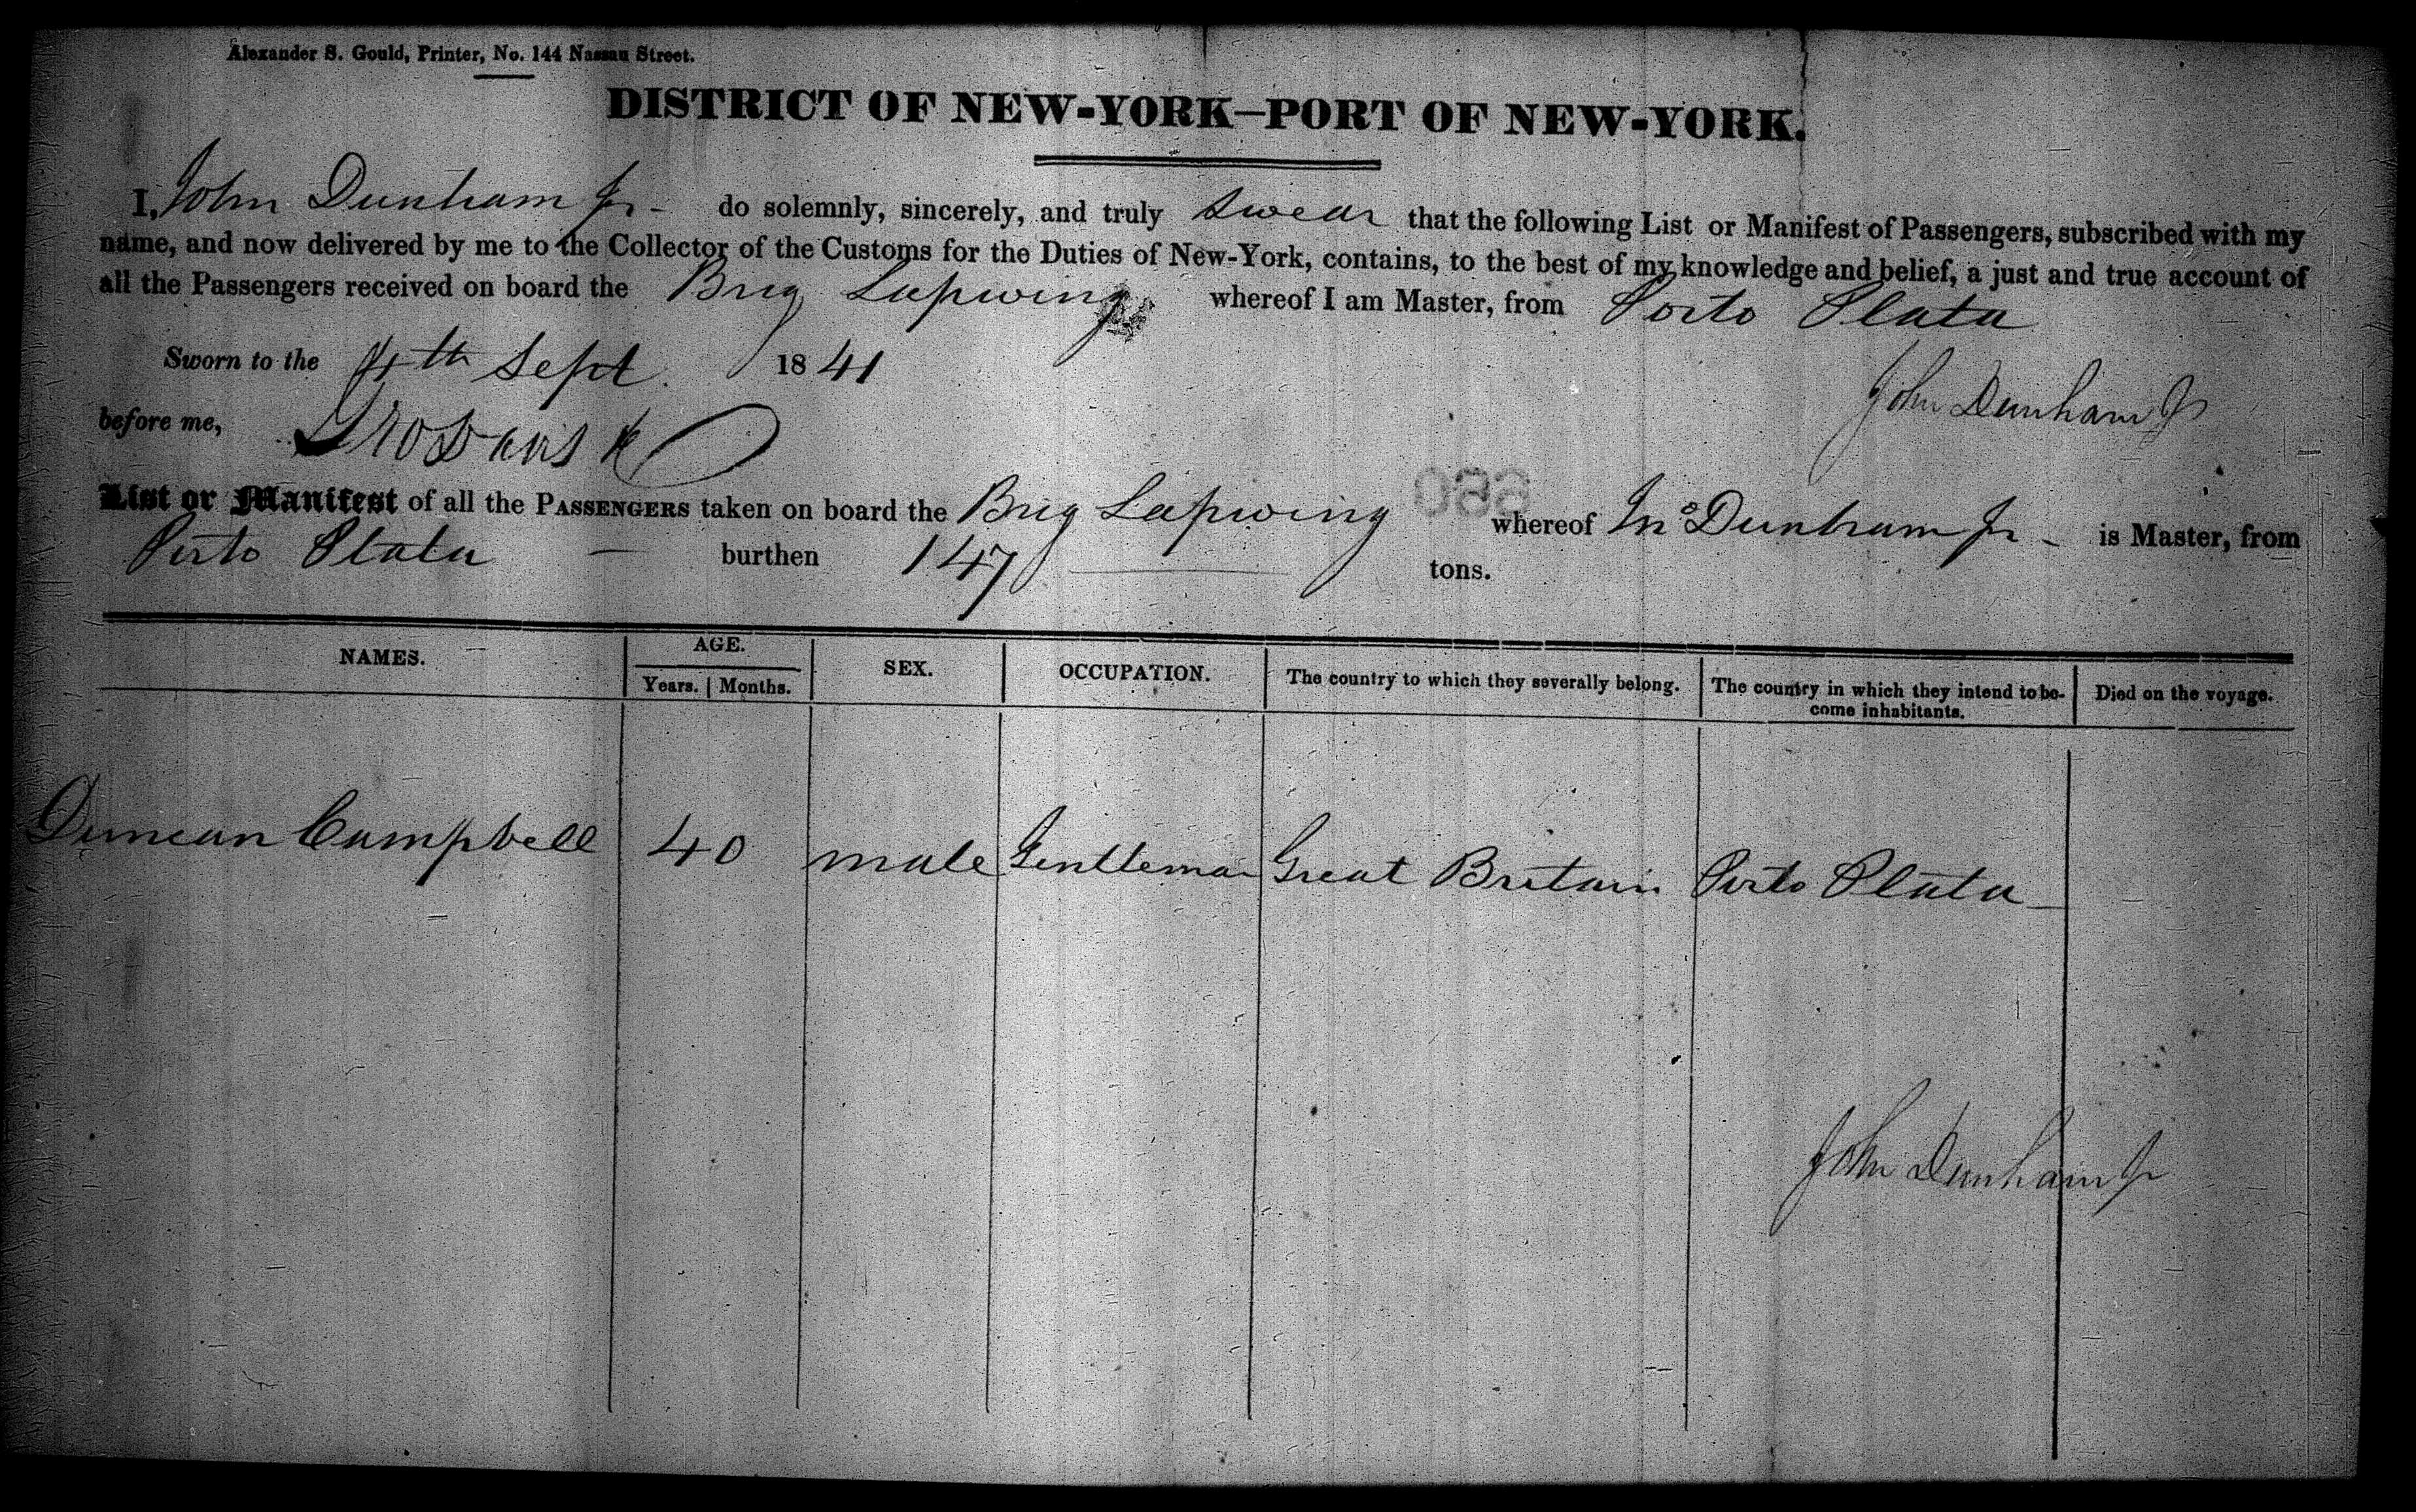 Alexander S. Gould, Printer, No. 144 Nassau Street.
DISTRICT OF NEW-YORK—PORT OF NEW-YORK.
I, John Dunham Jr - do solemnly, sincerely, and truly swear that the following List or Manifest of Passengers, subscribed with my
name, and now delivered by me to the Collector of the Customs for the Duties of New-York, contains, to the best of my knowledge and belief, a just and true account of
all the Passengers received on board the Brig Lapwing whereof I am Master, from Porto Plata
Sworn to the 4th Sept. 1841
John Dunham Jr
before me,
List or Manifest of all the PASSENGERS taken on board the Brig Lapwing whereof Jno Dunham Jr - is Master, from
Porto Plata — burthen 147 tons.
NAMES. AGE. SEX. OCCUPATION. The country to which they severally belong. The country in which they intend to be- Died on the voyage.
Years. Months. come inhabitants.
Duncan Campbell 40 male Gentleman Great Britain Porto Plata
John Dunham Jr